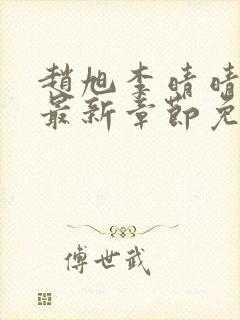 趙旭李晴晴
最新章節免
傅世武